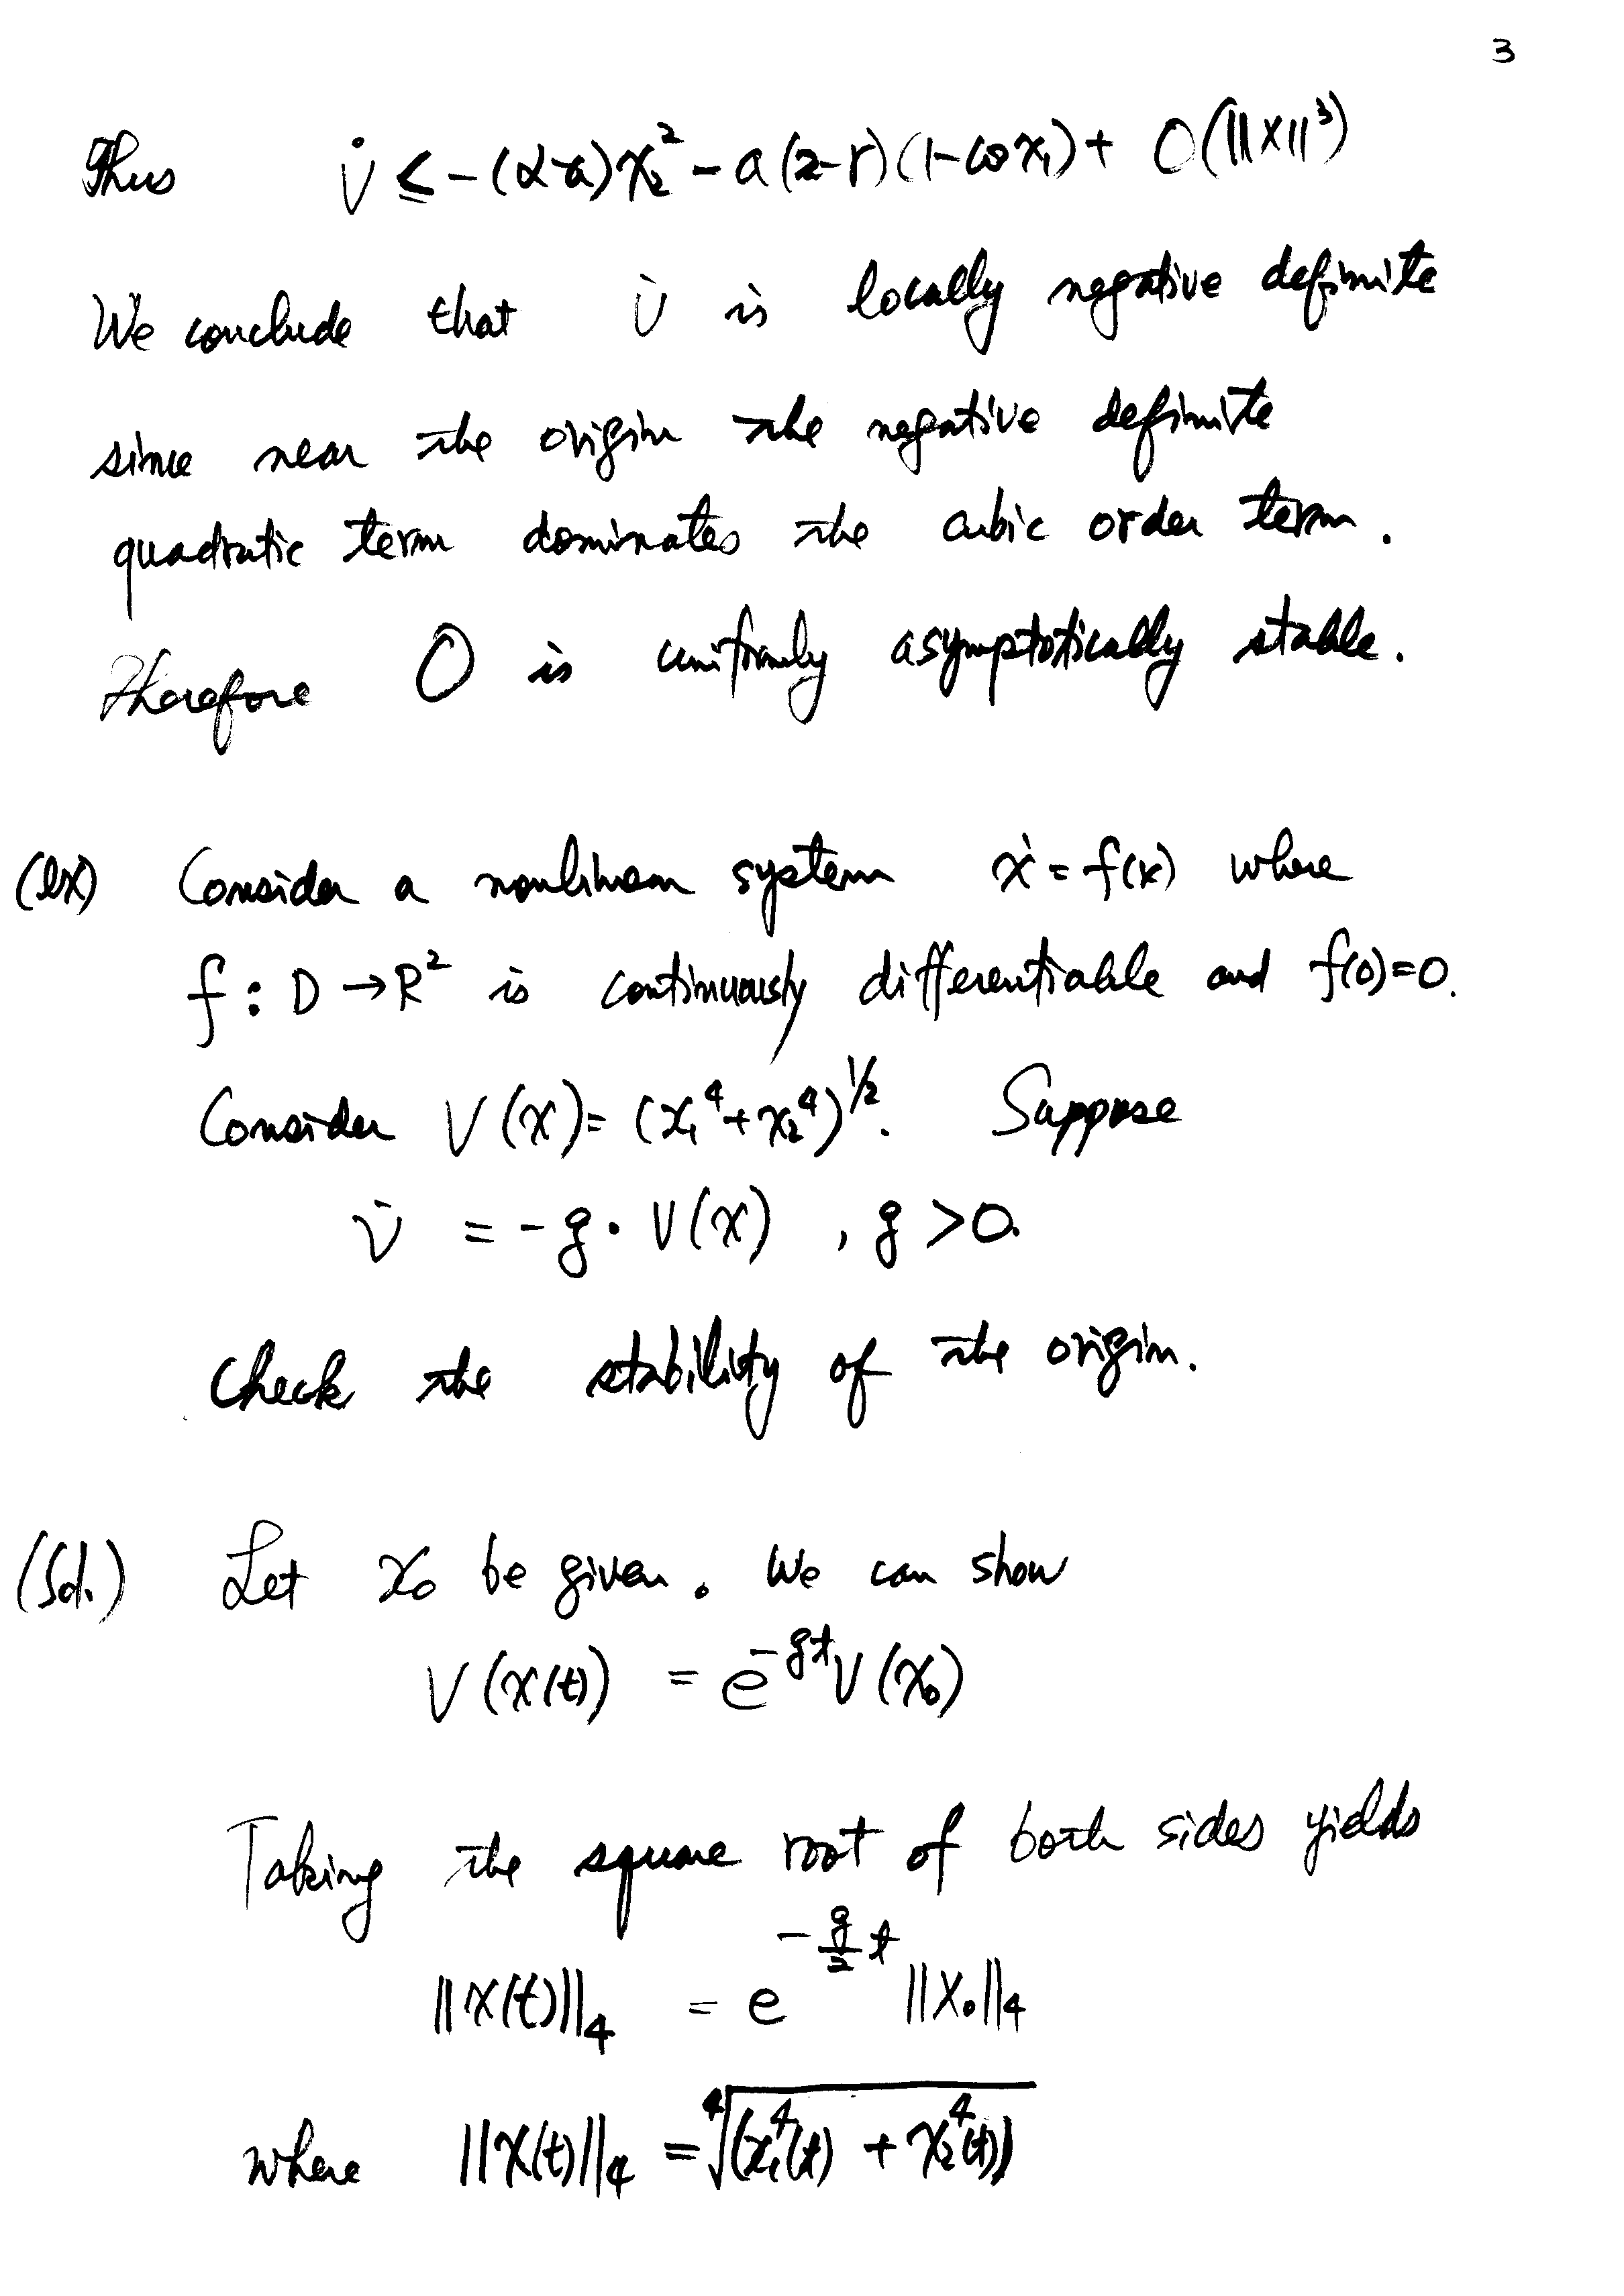 3
Thus V̇ ≤ -(α-a)x₂² - a(2-r)(1-cos x₁) + O(||x||³)
We conclude that V̇ is locally negative definite
since near the origin the negative definite
quadratic term dominates the cubic order term.
Therefore O is uniformly asymptotically stable.
(ex) Consider a nonlinear system ẋ = f(x) where
f : D → R² is continuously differentiable and f(0)=0.
Consider V(x) = (x₁⁴+x₂⁴)^½. Suppose
V̇ = -g · V(x) , g > 0.
Check the stability of the origin.
(Sol.) Let x₀ be given. We can show
V(x(t)) = e^{-gt} V(x₀)
Taking the square root of both sides yields
||x(t)||₄ = e^{-g/2 t} ||x₀||₄
where ||x(t)||₄ = ⁴√(x₁⁴(t) + x₂⁴(t))